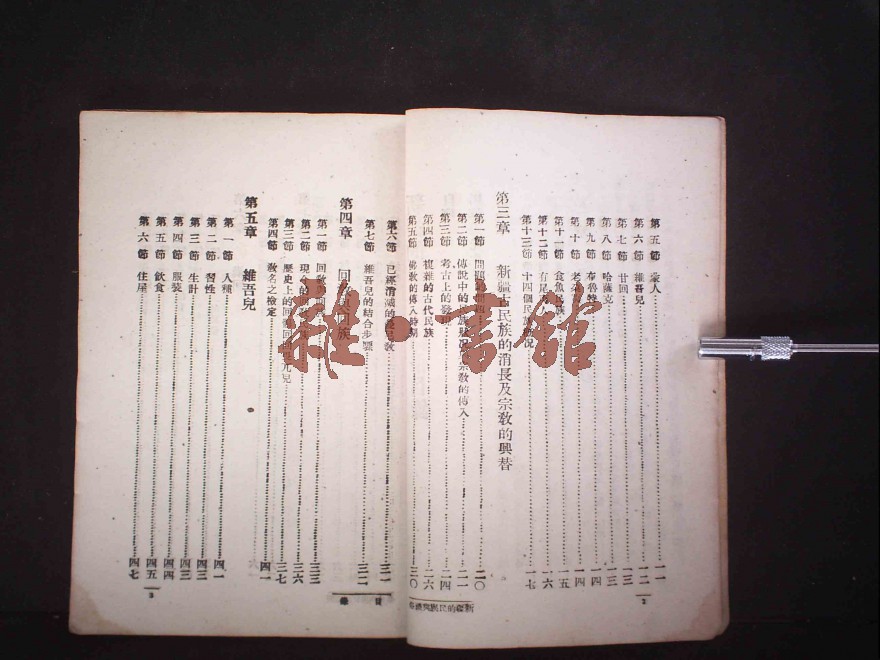 第五節 蒙人 一一
第六節 維吾兒 一二
第七節 甘回 一三
第八節 哈薩克 一四
第九節 布魯特 一四
第十節 老
第十一節 食魚民族 一五
第十二節 有尾 人 一六
第十三節 十四個民族 況 一七
第三章 新疆古民族的消長及宗教的興替
第一節 二〇
第二節 傳說中的 族 況 宗教的傳入 二一
第三節 考古上的發 二四
第四節 複雜的古代民族 二六
第五節 佛教的傳入時期 三〇
新疆的民族與
2
第六節 已經消滅的 教 三一
第七節 維吾兒的結合步驟 三二
第四章 回 族
第一節 回教 三三
第二節 現今的回 三六
第三節 歷史上的回 回 兒 三七
第四節 教名之檢定 四一
第五章 維吾兒
第一節 人種 四一
第二節 習性 四三
第三節 生計 四三
第四節 服裝 四四
第五節 飲食 四五
第六節 住屋 四七
目錄
3
雜·書館